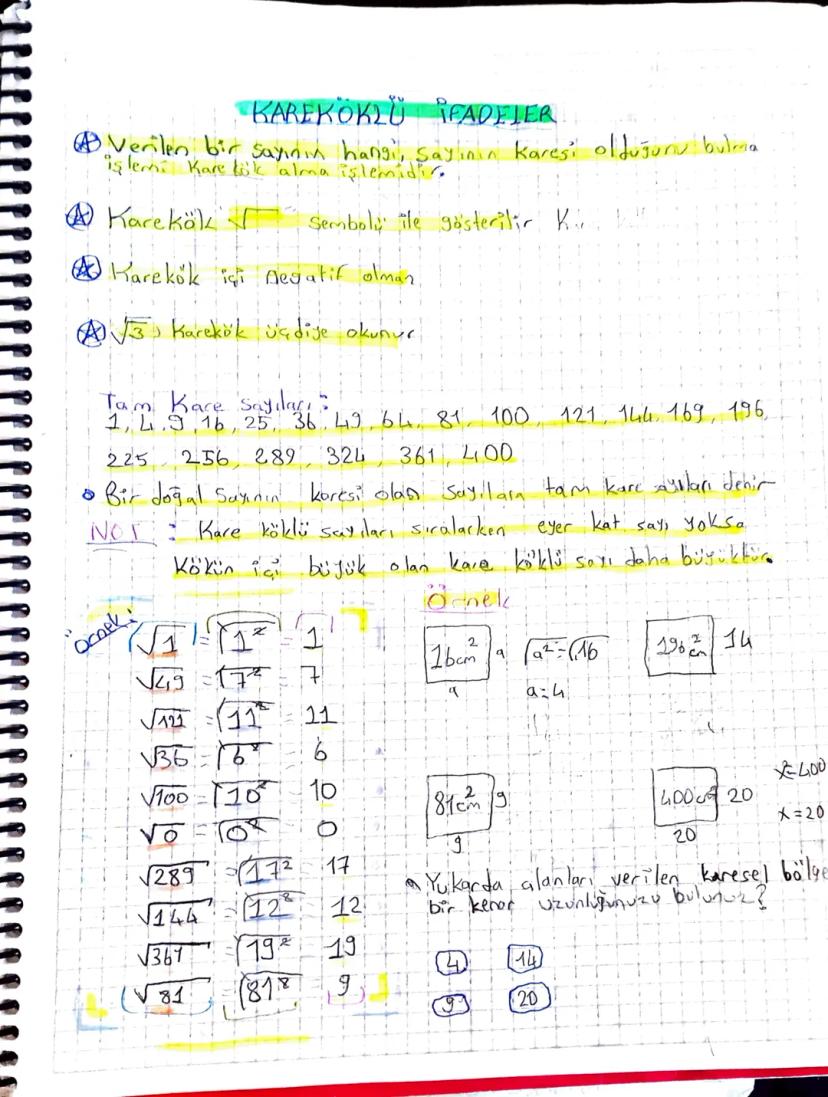 KAREKÖKLÜ İFADELER
Verilen bir sayının hangi, sayının karesi olduğunu bulma
işlemi Kare kök alma işlemidir.
Karekök √ sembolü ile gösterilir K
Karekök içi negatif olmaz
√3 Karekök üç diye okunur
Tam Kare Sayıları:
1, 4, 9, 16, 25, 36, 49, 64, 81, 100, 121, 144, 169, 196,
225, 256, 289, 324, 361, 400
Bir doğal sayının karesi olan sayılara tam kare sayıları denir
NOT : Kare köklü sayıları sıralarken eyer kat sayı yoksa
Kökün içi büyük olan kare köklü sayı daha büyüktür.
Örnek:
√1 = √1² = 1
√49 = √7² = 7
√121 = √11² = 11
√36 = √6² = 6
√100 = √10² = 10
√0 = √0² = 0
√289 = √17² = 17
√144 = √12² = 12
√361 = √19² = 19
√81 = √81² = 9
Örnek
16cm² a √a² = √16 196cm² 14
a a=4
81cm² 9 400cm² 20 x²=400
9 20 x=20
Yukarda alanları verilen karesel bölge
bir kenar uzunluğunuzu bulunuz?
4 14
9 20